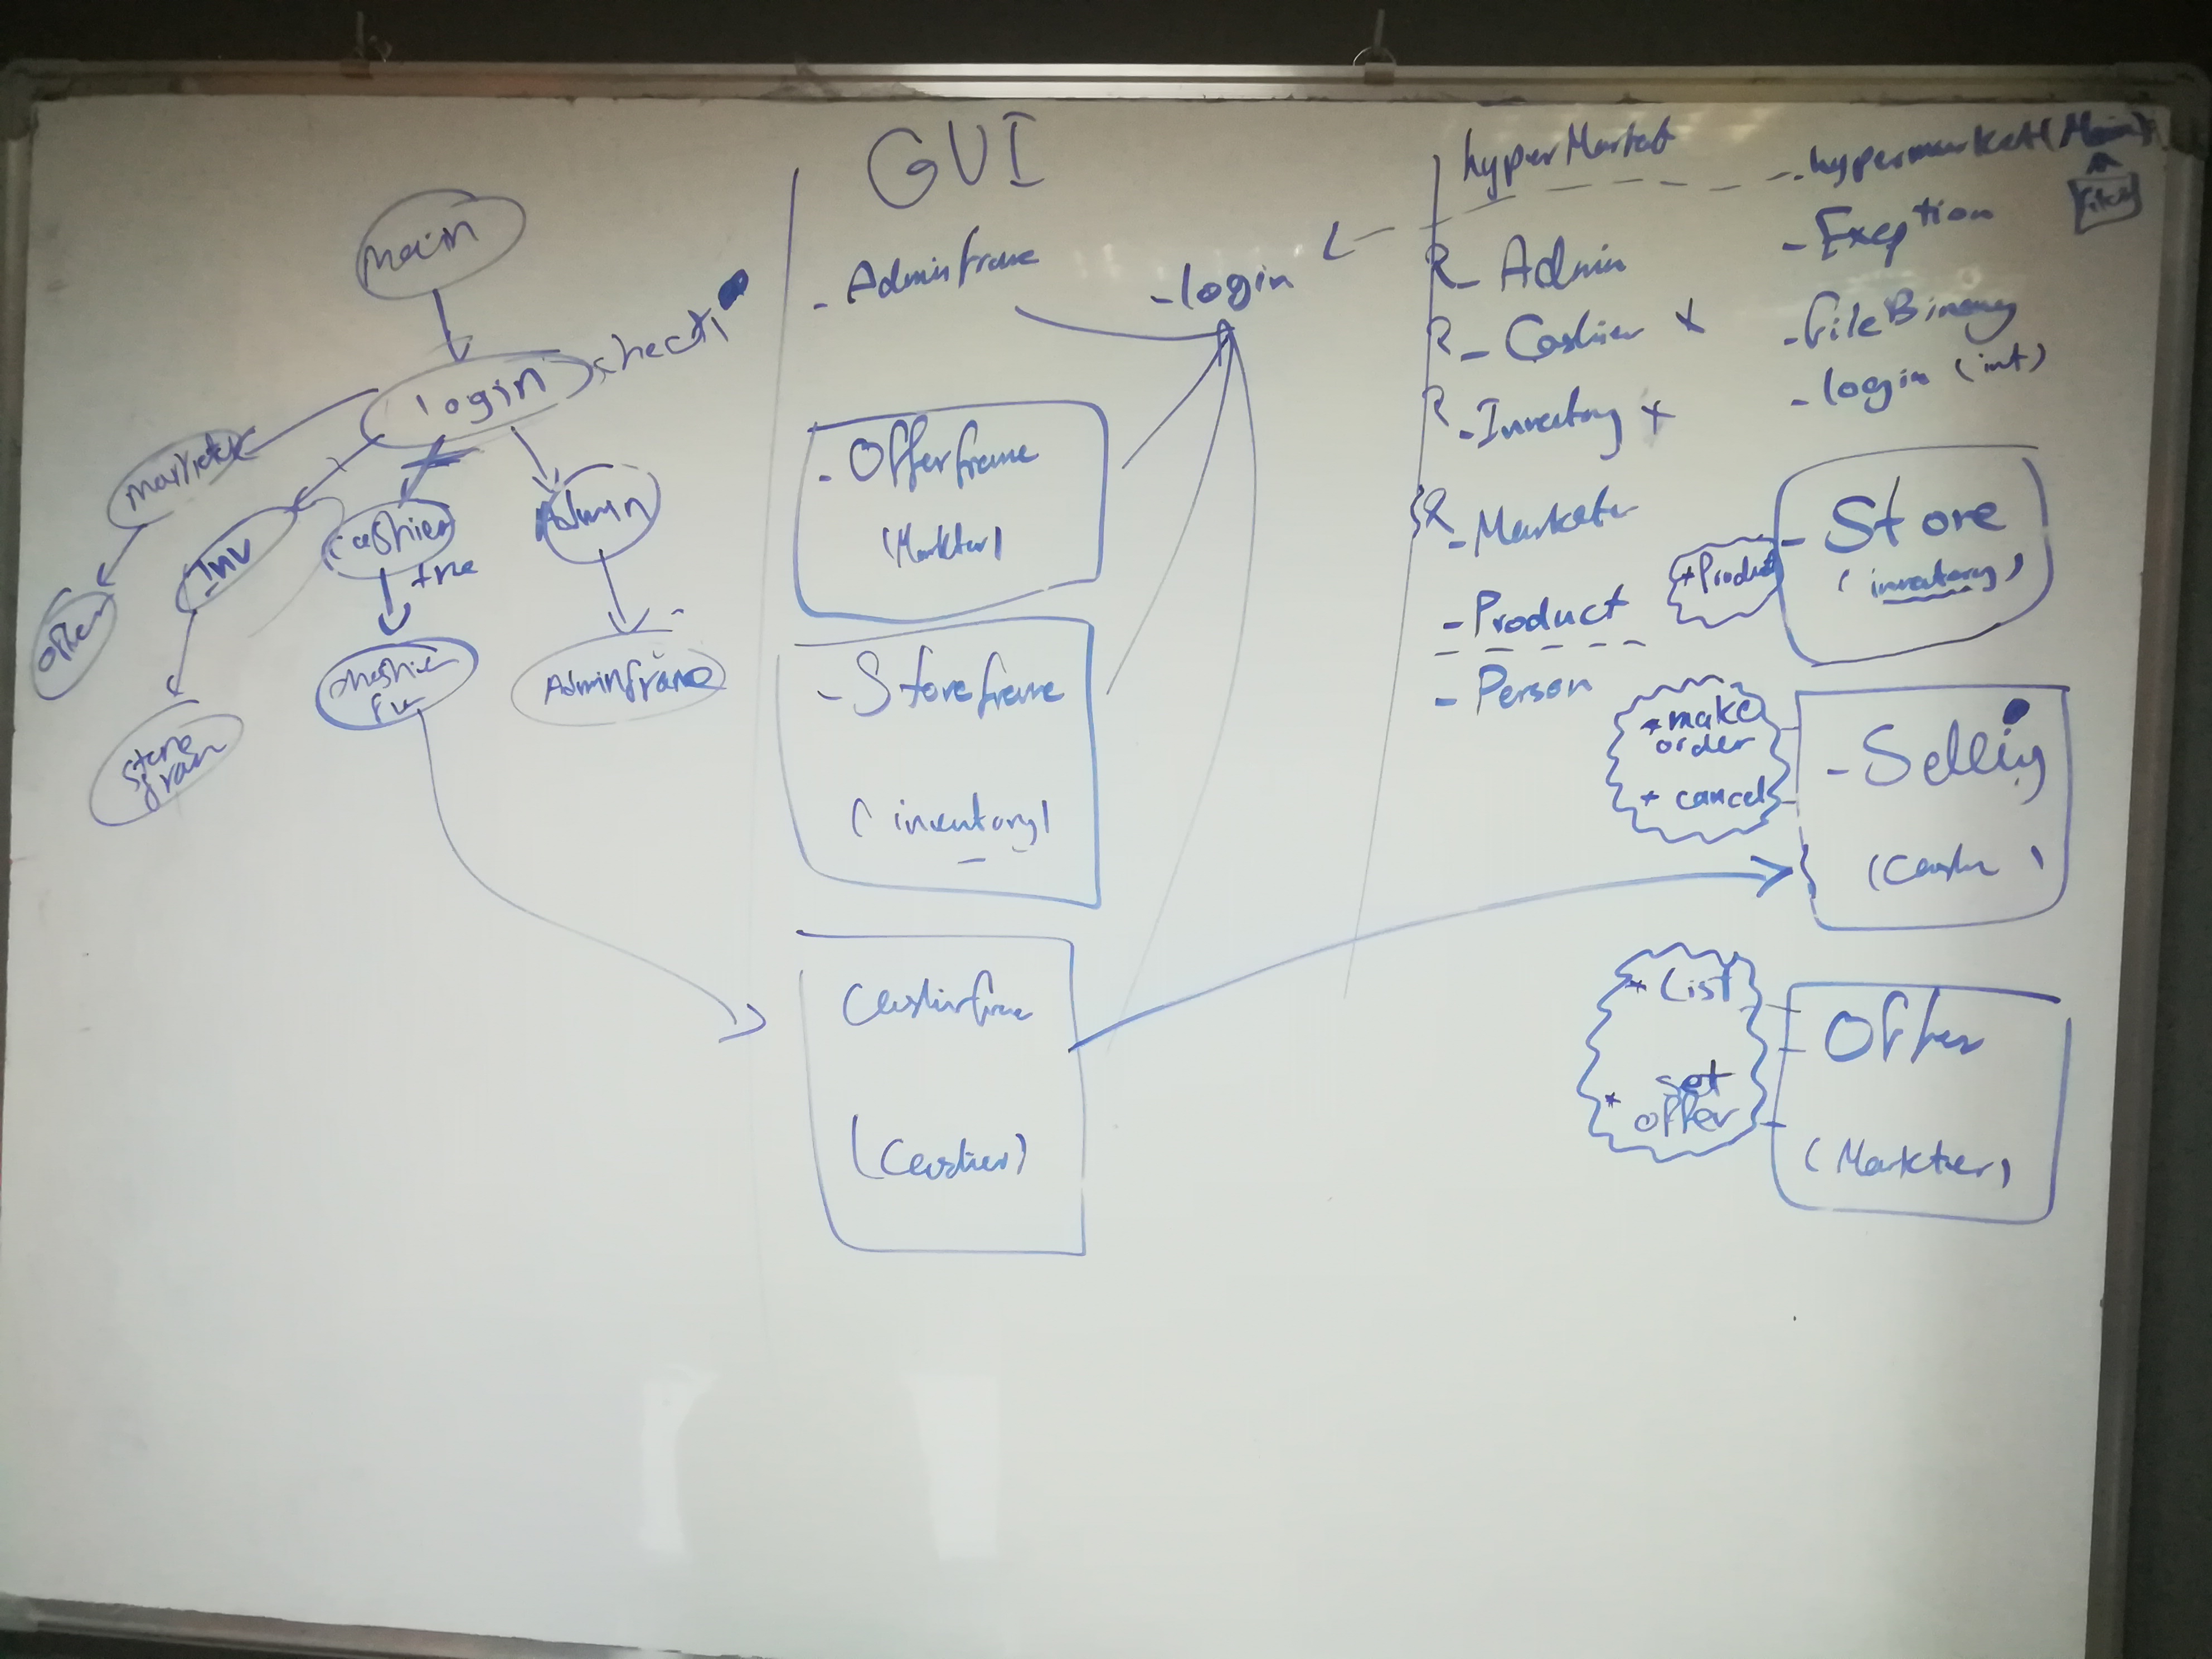 Main
login
check()
Inv
cashier
true
Admin
Adminframe
store
fram
GUI
- Adminframe
- login
- Offerframe
(Markter)
- Storeframe
(inventory)
Cashirframe
(Cashier)
hyperMarket
R - Admin
R - Cashier x
R - Inventory x
R - Marketer
- Product
- Person
- hypermarket (Main)
- Exeption
- fileBinary
- login (int)
+ Product
- Store
(inventory)
+ make
order
+ cancel
- Selling
* List
* set
offer
Offer
(Marktier)